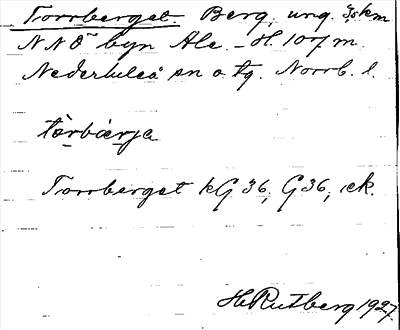 Torrberget. Berg, ung. 3,5 km
NNÖ byn Ale. – H. 107 m.
Nederluleå sn o tg. Norrb. l.
tòrbærja
Torrberget kG 36, G 36, ek.
HRutberg 1927.